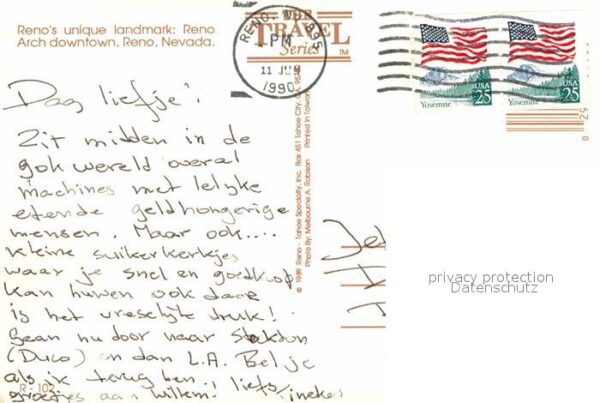 Reno's unique landmark: Reno
Arch downtown, Reno, Nevada.
THE
TRAVEL
Series
TM
RENO, NV 895
PM
11 JUN
1990
Yosemite
USA
25
Yosemite
USA
25
Dag liefje!
Zit midden in de
gok wereld overal
machines met lelijke
etende geldhongerige
mensen. Maar ook....
kleine suikerkerkjes
waar je snel en goedkoop
kan huwen ook daar
is het vreselijk druk!
Gaan nu door naar Stockton
(Duco) en dan L.A. Bel je
als ik terug ben! liefs
groetjes aan Willem! Ineke
R-102
© 1989 Reno - Tahoe Specialty, Inc. Box 451 Tahoe City, CA 95
Photo By: Melbourne A. Robison
Printed in Taiwan
privacy protection
Datenschutz